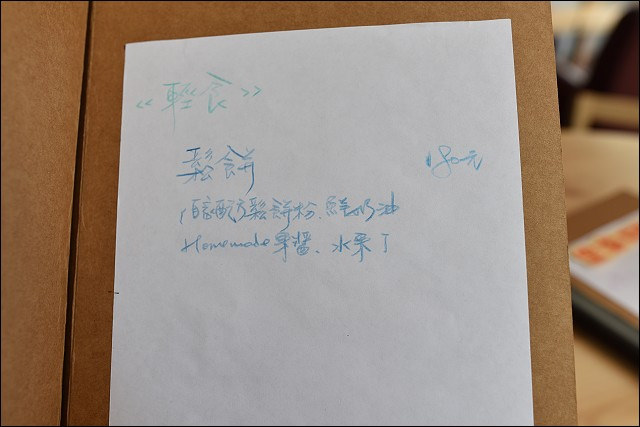 《輕食》
鬆餅 180元
自家配方鬆餅粉、鮮奶油
Homemade果醬、水果丁